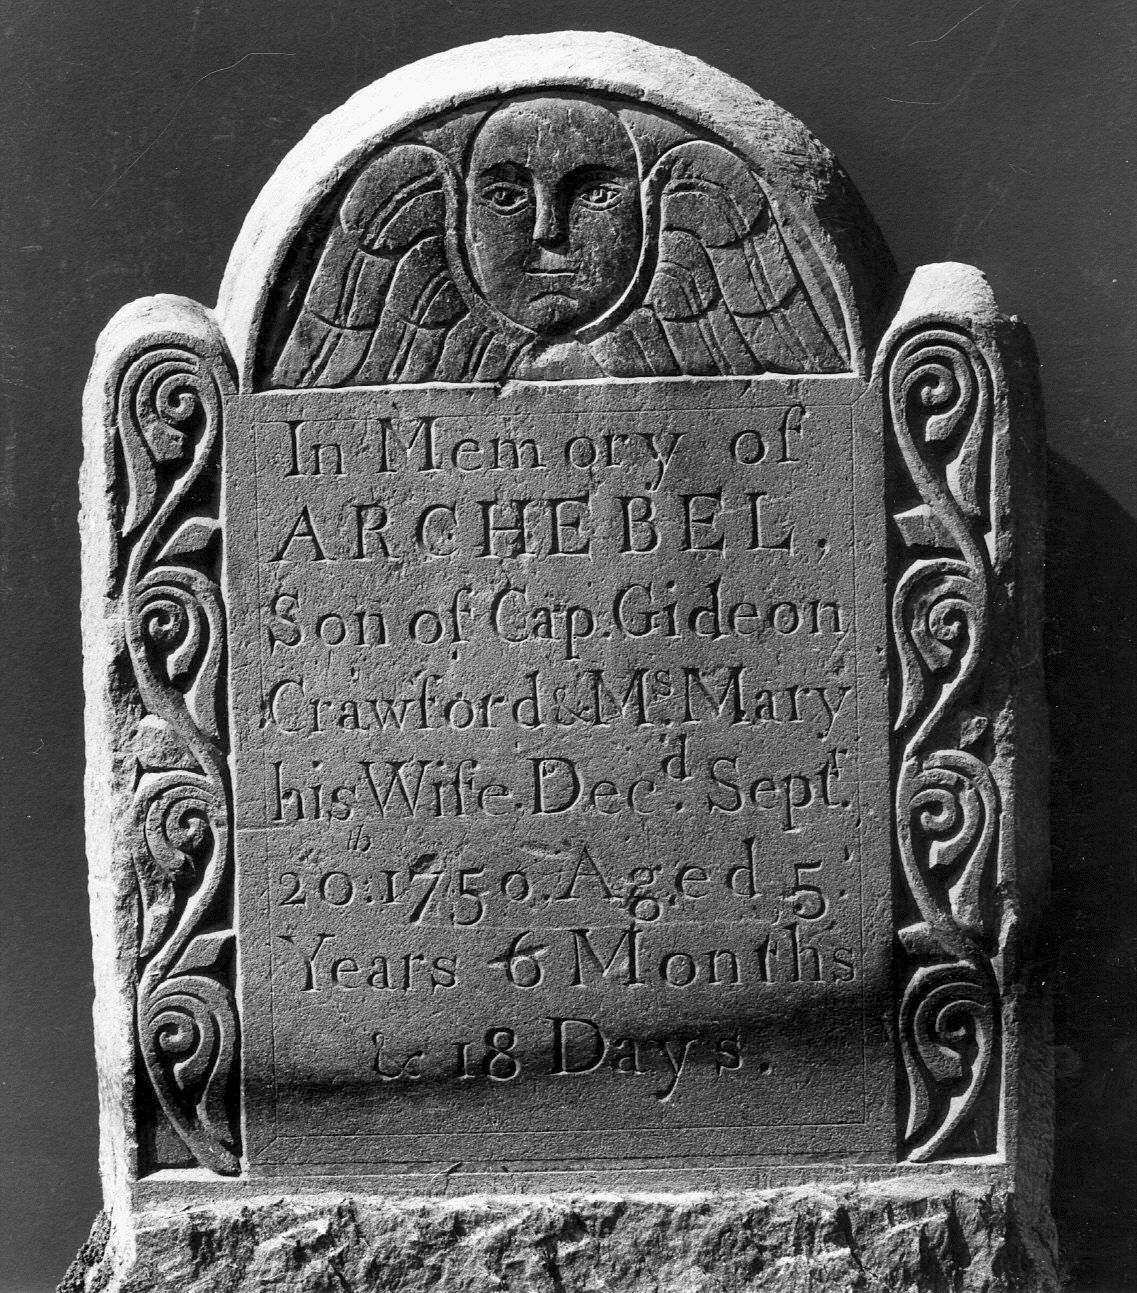 In Memory of
ARCHEBEL,
Son of Cap. Gideon
Crawford & Ms. Mary
his Wife. Decd. Septr.
20th: 1750. Aged 5.
Years 6 Months
& 18 Days.